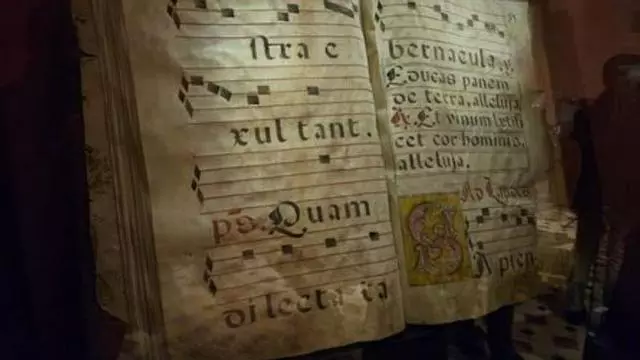 stra e
xultant.
ps. Quam
dilecta ta
bernacula. ℣.
Educas panem
de terra, alleluja.
℟. Et vinum lætifi
cet cor hominis,
alleluja.
Ad Laudes
Apien